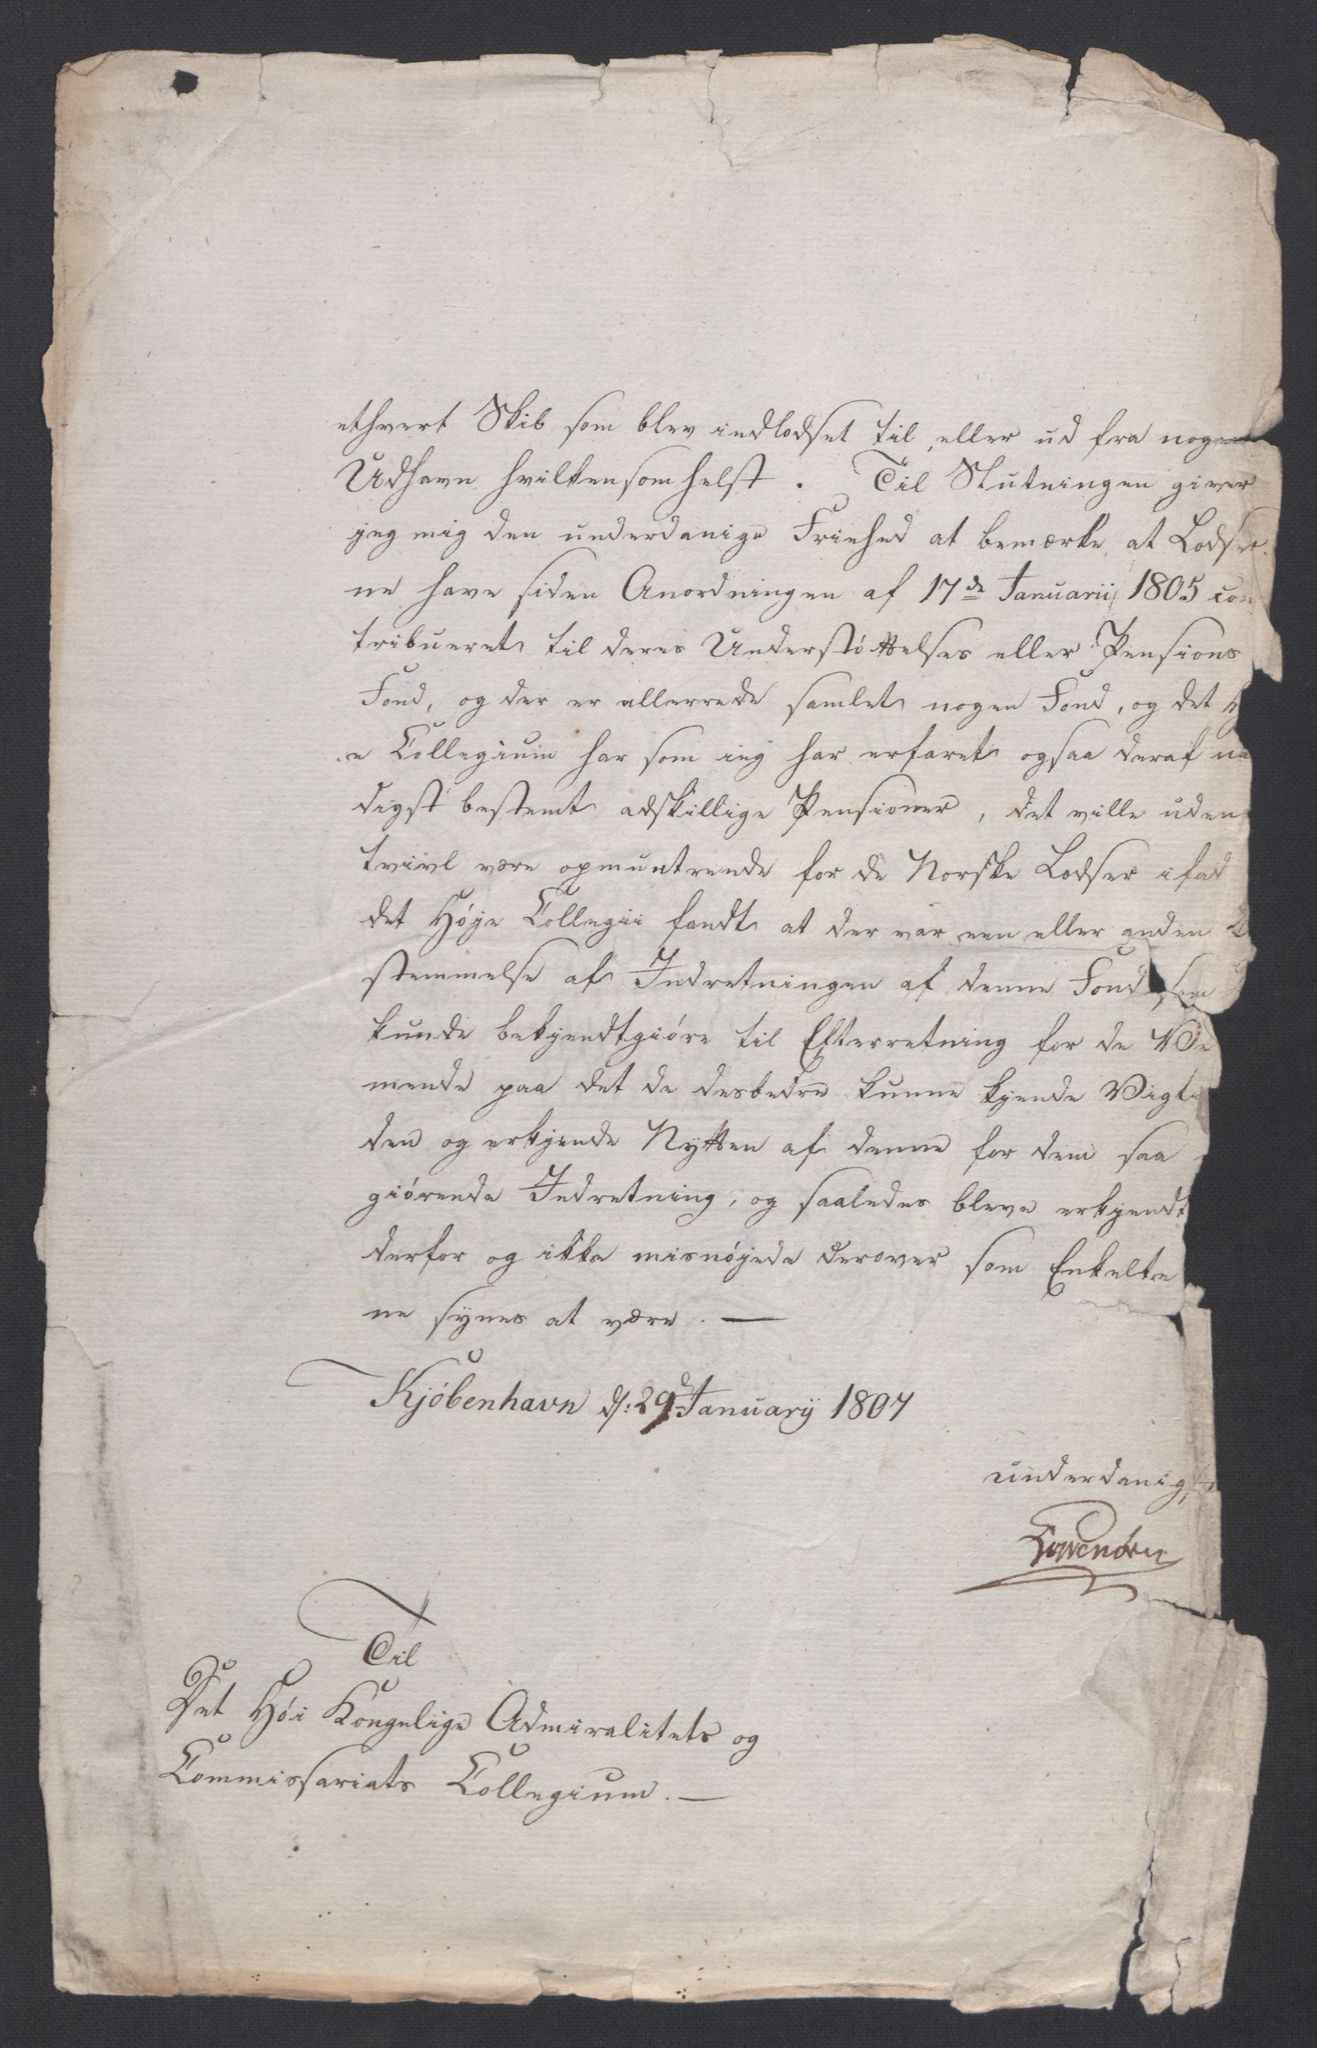 ethvert Skib som blev indlodset til, eller ud fra nogen
Udhavn hvilkensomhelst. Til Slutningen giver
jeg mig den underdanige Friehed at bemærke at Lodser
ne have siden Anordningen af 17de Januarii 1805 con
tribueret til deres Understøttelses eller Pensions
Fond, og der er allerrede samlet nogen Fond, og det H
e Collegium har som ieg har erfaret ogsaa deraf naa
digst bestemt adskillige Pensioner, det ville uden
tvivl være opmuntrende for de Norske Lodser ifad
det Høje Collegii fandt at der var een eller anden
stemmelse af Indretningen af denne Fond som
kunde bekjendtgiøre til Efterretning for de Ve
mende paa det de desbedre kunne kjende Vigtig
den og erkjende Nytten af denne for dem saa
giørende Indretning, og saaledes bleve erkjendt
derfor og ikke misnøjede derover som Enkelte
ne synes at være. —
Kjöbenhavn d: 29d January 1807
underdanigst
Lövenörn
Til
Det Høi Kongelige Admiralitets og
Commissariats Collegium. —